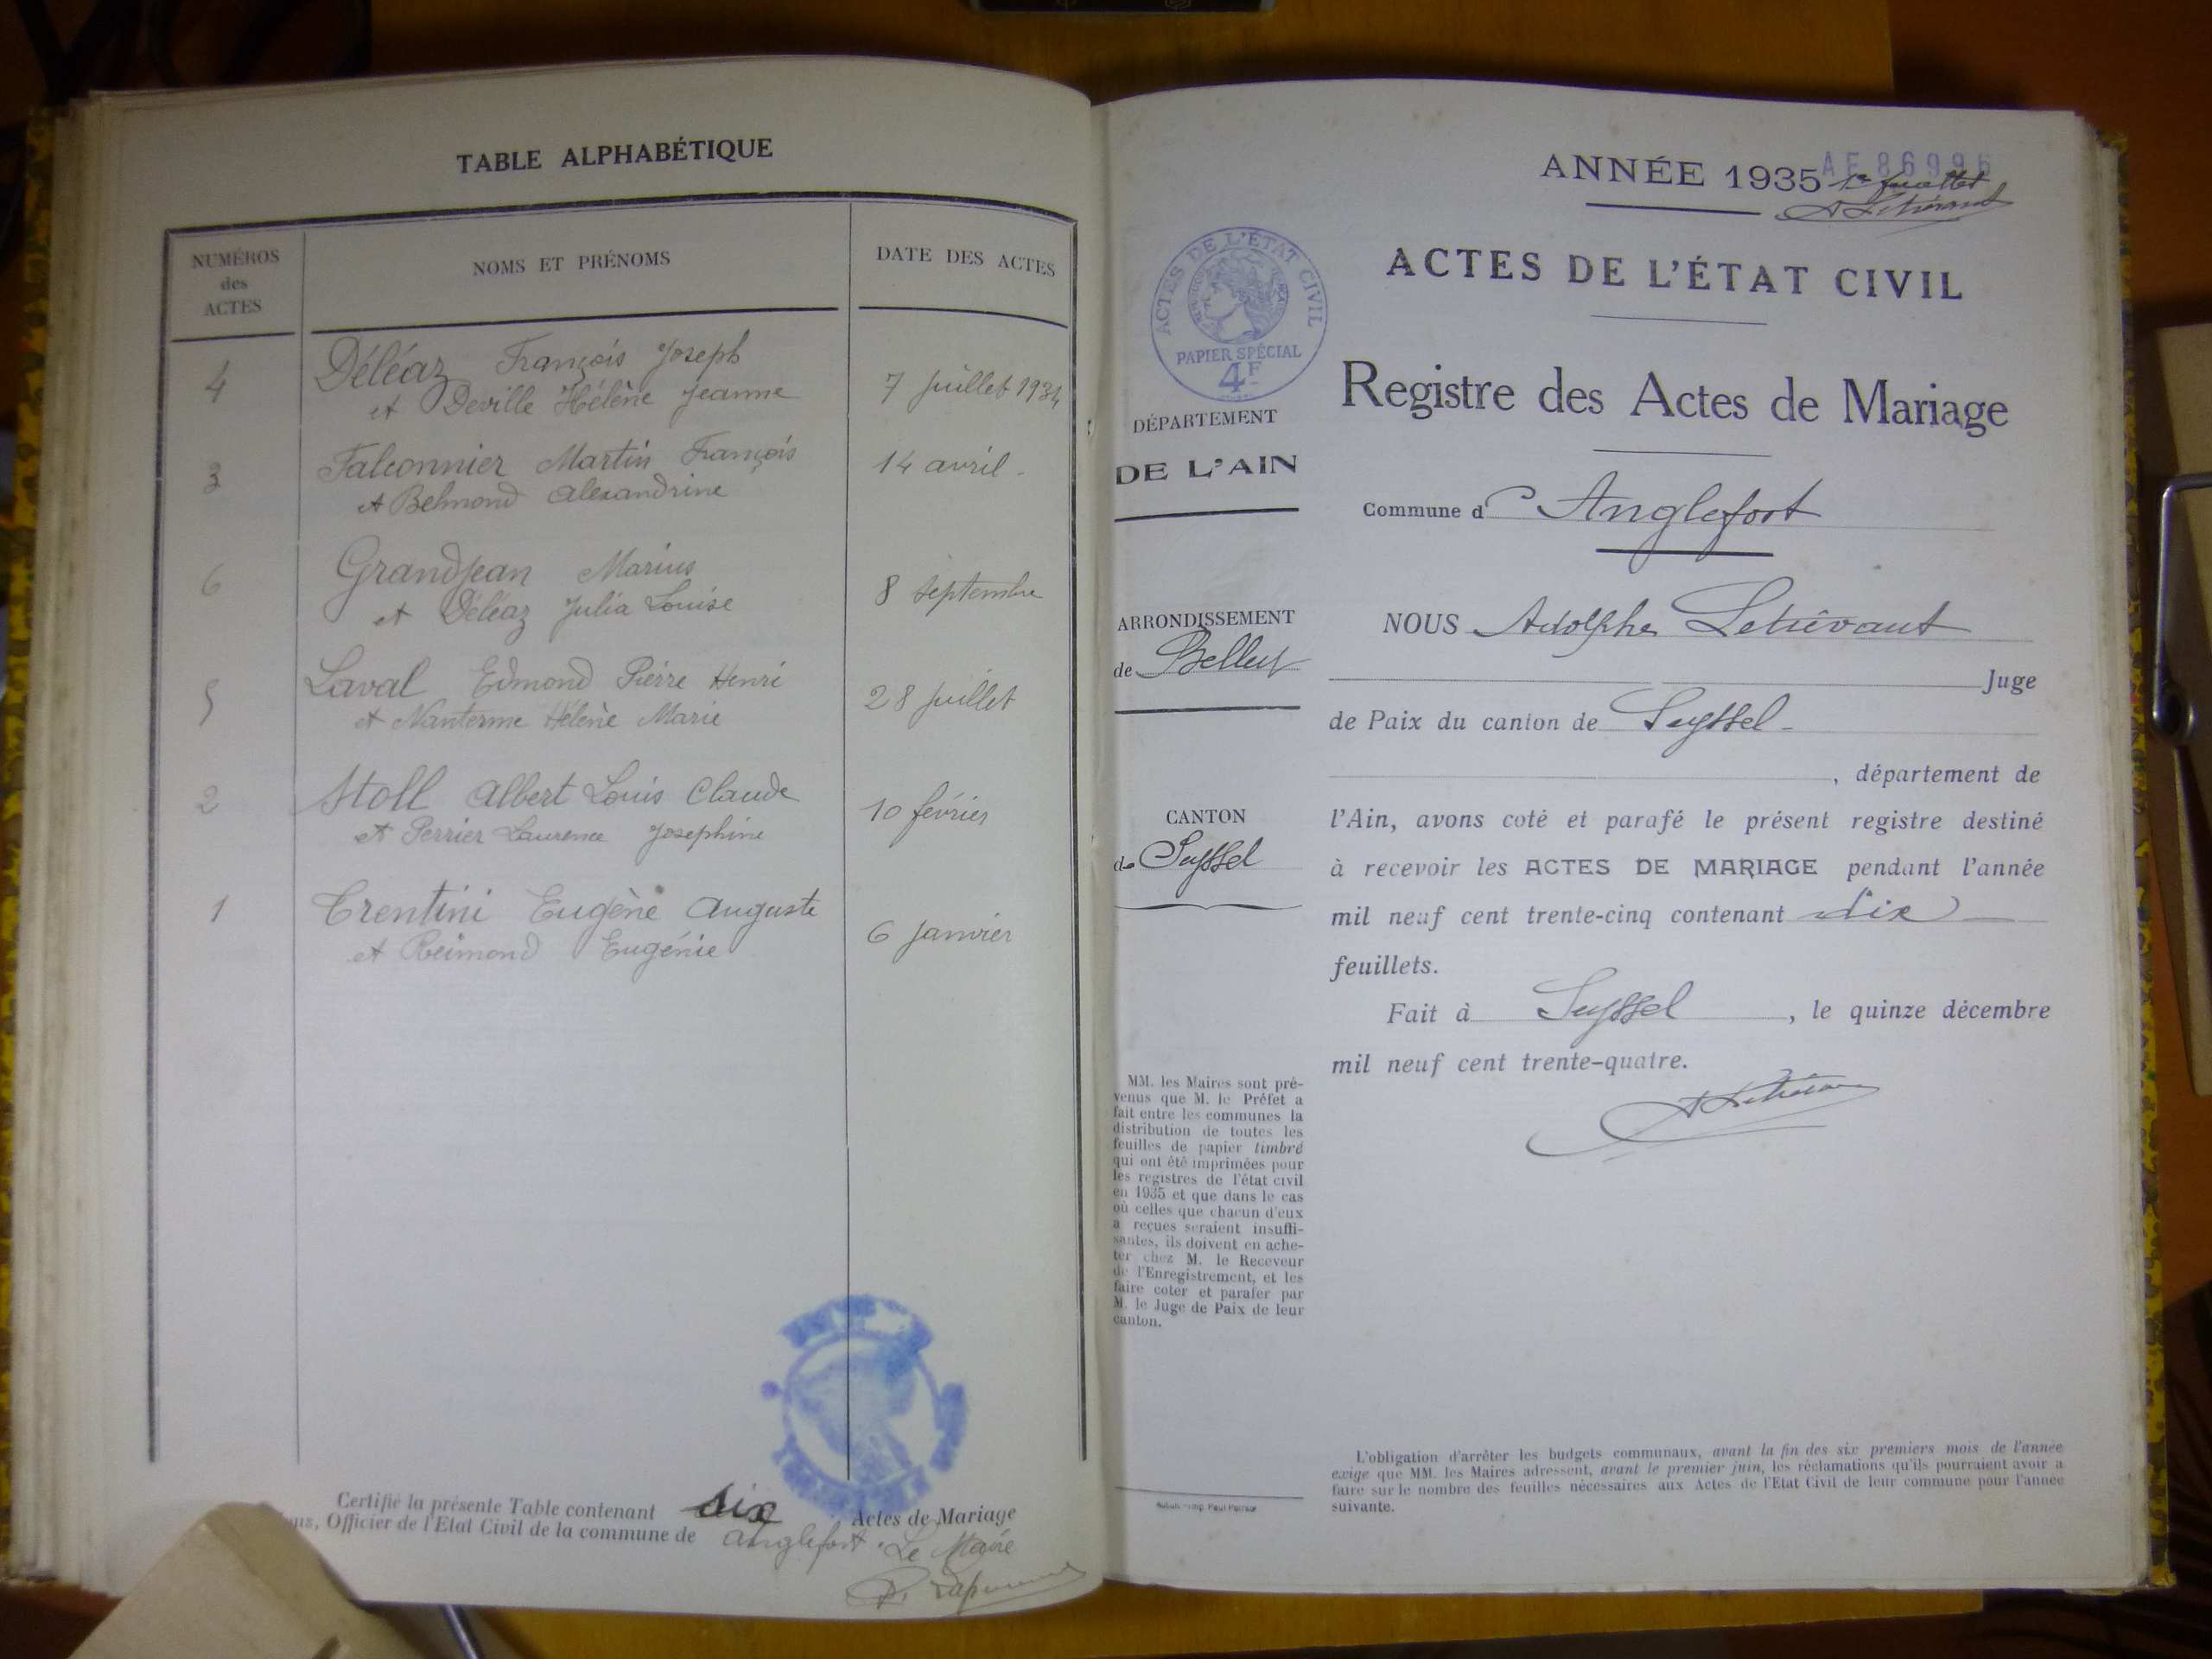 TABLE ALPHABÉTIQUE
NUMÉROS
des
ACTES
NOMS ET PRÉNOMS
DATE DES ACTES
4
Déléaz François Joseph
et Deville Hélène Jeanne
7 juillet 1934
3
Falconnier Martin François
et Belmond Alexandrine
14 avril -
6
Grandjean Marius
et Déléaz Julia Louise
8 septembre
5
Laval Edmond Pierre Henri
et Nanterme Hélène Marie
28 juillet
2
Stoll Albert Louis Claude
et Perrier Laurence Joséphine
10 février
1
Trentini Eugène Auguste
et Reimond Eugénie
6 janvier
Certifié la présente Table contenant six Actes de Mariage
Officier de l'Etat Civil de la commune de Anglefort. Le Maire
ANNÉE 1935
AF 86996
ACTES DE L'ÉTAT CIVIL
PAPIER SPÉCIAL
4F
ACTES DE L'ÉTAT CIVIL
Registre des Actes de Mariage
DÉPARTEMENT
DE L'AIN
Commune d' Anglefort
ARRONDISSEMENT
de Belley
CANTON
de Seyssel
NOUS Adolphe Letiévant
Juge
de Paix du canton de Seyssel -
, département de
l'Ain, avons coté et parafé le présent registre destiné
à recevoir les ACTES DE MARIAGE pendant l'année
mil neuf cent trente-cinq contenant dix
feuillets.
Fait à Seyssel , le quinze décembre
mil neuf cent trente-quatre.
MM. les Maires sont pré-
venus que M. le Préfet a
fait entre les communes la
distribution de toutes les
feuilles de papier timbré
qui ont été imprimées pour
les registres de l'état civil
en 1935 et que dans le cas
où celles que chacun d'eux
a reçues seraient insuffi-
santes, ils doivent en ache-
ter chez M. le Receveur
de l'Enregistrement, et les
faire coter et parafer par
M. le Juge de Paix de leur
canton.
L'obligation d'arrêter les budgets communaux, avant la fin des six premiers mois de l'année
exige que MM. les Maires adressent, avant le premier juin, les réclamations qu'ils pourraient avoir à
faire sur le nombre des feuilles nécessaires aux Actes de l'Etat Civil de leur commune pour l'année
suivante.